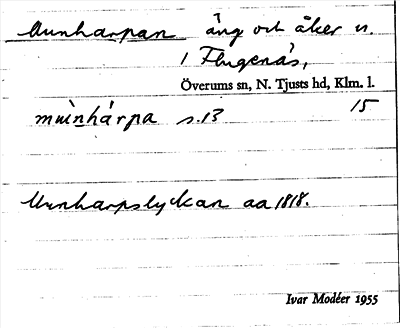 Munharpan äng och åker n.
1 Flugenäs,
Överums sn, N. Tjusts hd, Klm. l.
mùnhárpa s.13 15
Munharpslyckan aa 1818.
Ivar Modéer 1955